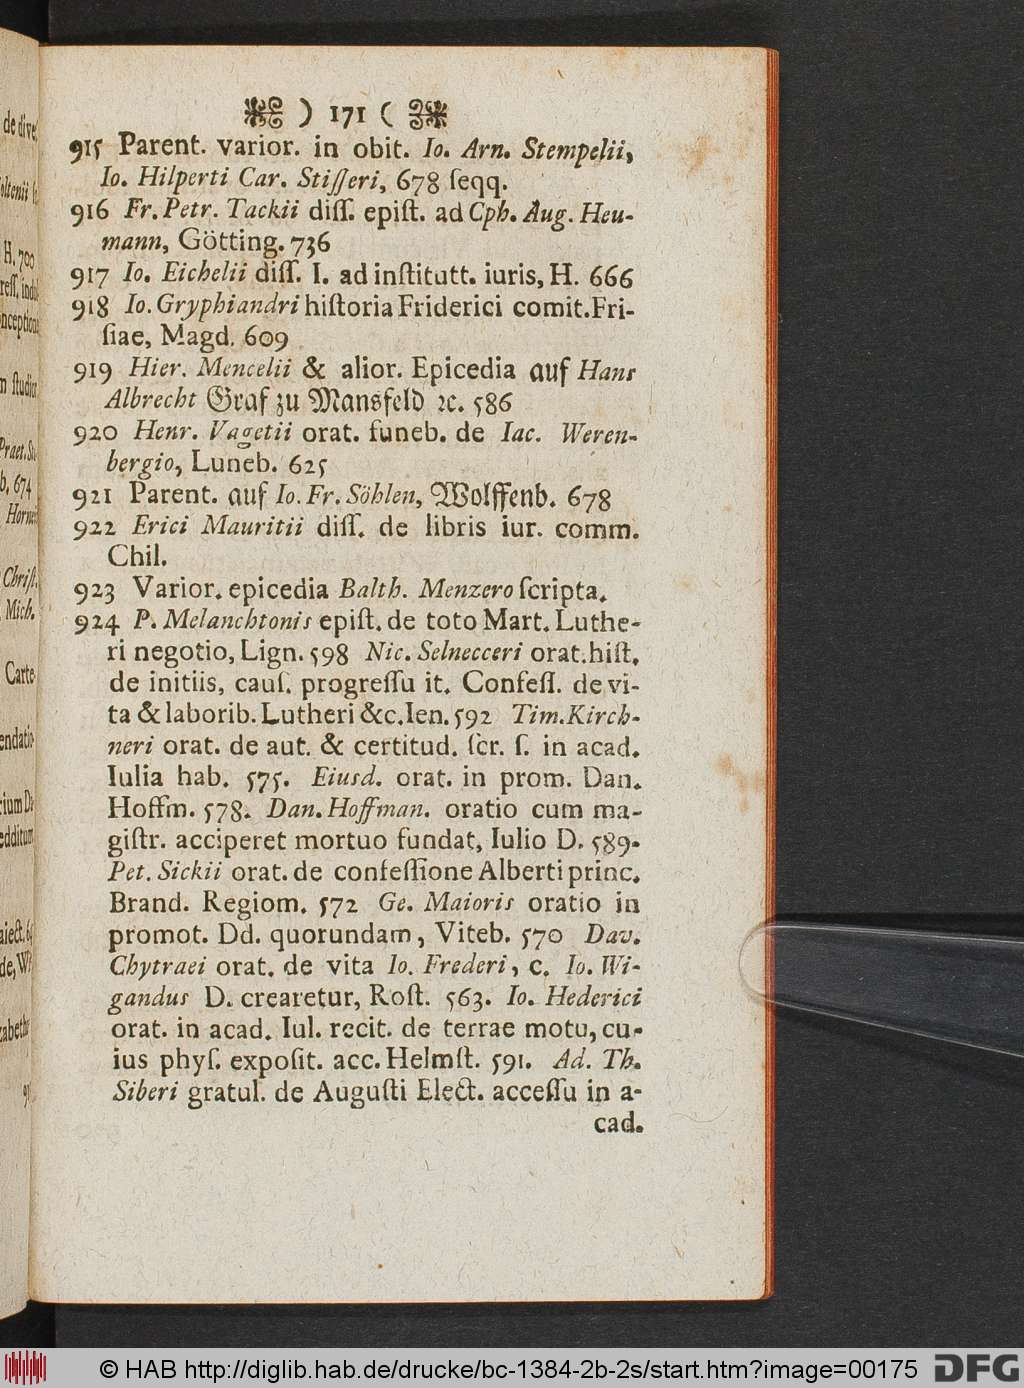 ) 171 (
915 Parent. varior. in obit. Io. Arn. Stempelii,
Io. Hilperti Car. Stiſſeri, 678 ſeqq.
916 Fr. Petr. Tackii diſſ. epiſt. ad Cph. Aug. Heu-
mann, Götting. 736
917 Io. Eichelii diſſ. I. ad inſtitutt. iuris, H. 666
918 Io. Gryphiandri hiſtoria Friderici comit. Fri-
ſiae, Magd. 609
919 Hier. Mencelii & alior. Epicedia auf Hans
Albrecht Graf zu Mansfeld ꝛc. 586
920 Henr. Vagetii orat. funeb. de Iac. Weren-
bergio, Luneb. 625
921 Parent. auf Io. Fr. Söhlen, Wolffenb. 678
922 Erici Mauritii diſſ. de libris iur. comm.
Chil.
923 Varior. epicedia Balth. Menzero ſcripta.
924 P. Melanchtonis epiſt. de toto Mart. Luthe-
ri negotio, Lign. 598 Nic. Selnecceri orat. hiſt.
de initiis, cauſ. progreſſu it. Confeſſ. de vi-
ta & laborib. Lutheri &c. Ien. 592 Tim. Kirch-
neri orat. de aut. & certitud. ſcr. ſ. in acad.
Iulia hab. 575. Eiusd. orat. in prom. Dan.
Hoffm. 578. Dan. Hoffman. oratio cum ma-
giſtr. acciperet mortuo fundat, Iulio D. 589.
Pet. Sickii orat. de confeſſione Alberti princ.
Brand. Regiom. 572 Ge. Maioris oratio in
promot. Dd. quorundam, Viteb. 570 Dav.
Chytraei orat. de vita Io. Frederi, c. Io. Wi-
gandus D. crearetur, Roſt. 563. Io. Hederici
orat. in acad. Iul. recit. de terrae motu, cu-
ius phyſ. expoſit. acc. Helmſt. 591. Ad. Th.
Siberi gratul. de Auguſti Elect. acceſſu in a-
cad.
© HAB http://diglib.hab.de/drucke/bc-1384-2b-2s/start.htm?image=00175
DFG